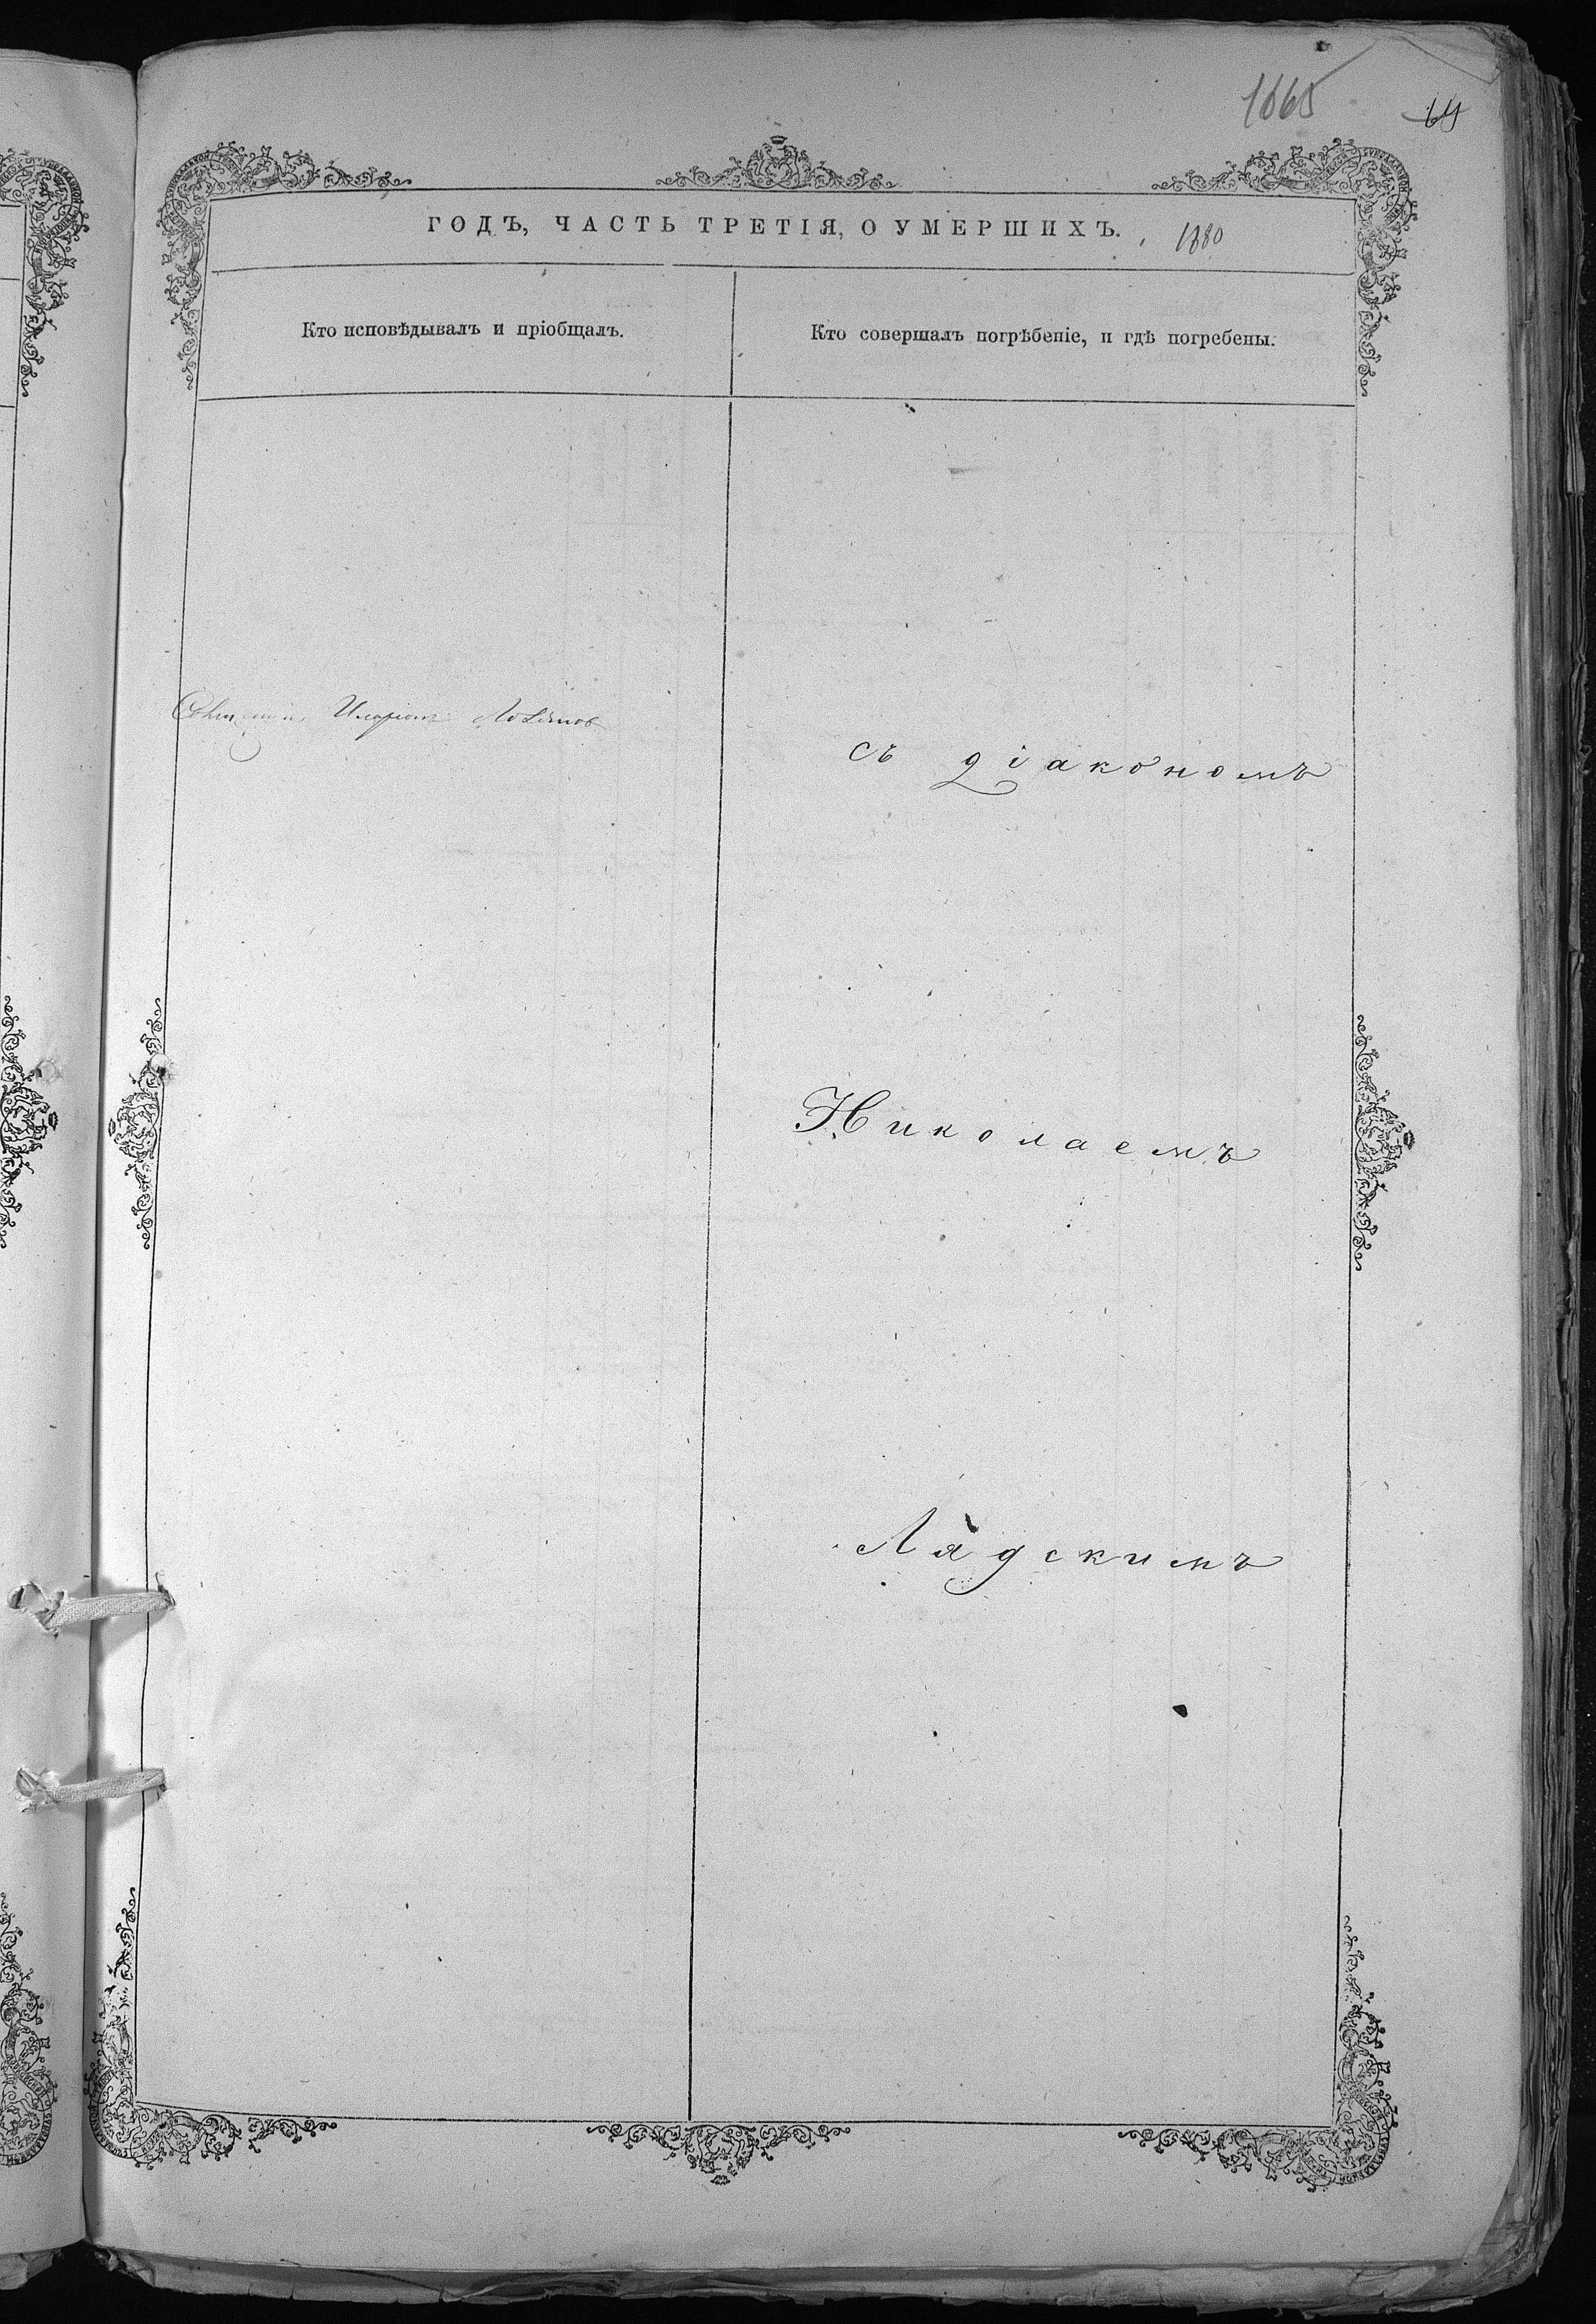 1065
ГОДЪ, ЧАСТЬ ТРЕТІЯ, О УМЕРШИХЪ. 1880
Кто исповѣдывалъ и пріобщалъ.
Кто совершалъ погрѣбеніе, и гдѣ погребены.
Иларіонъ
съ діакономъ
Николаемъ
Лядскимъ